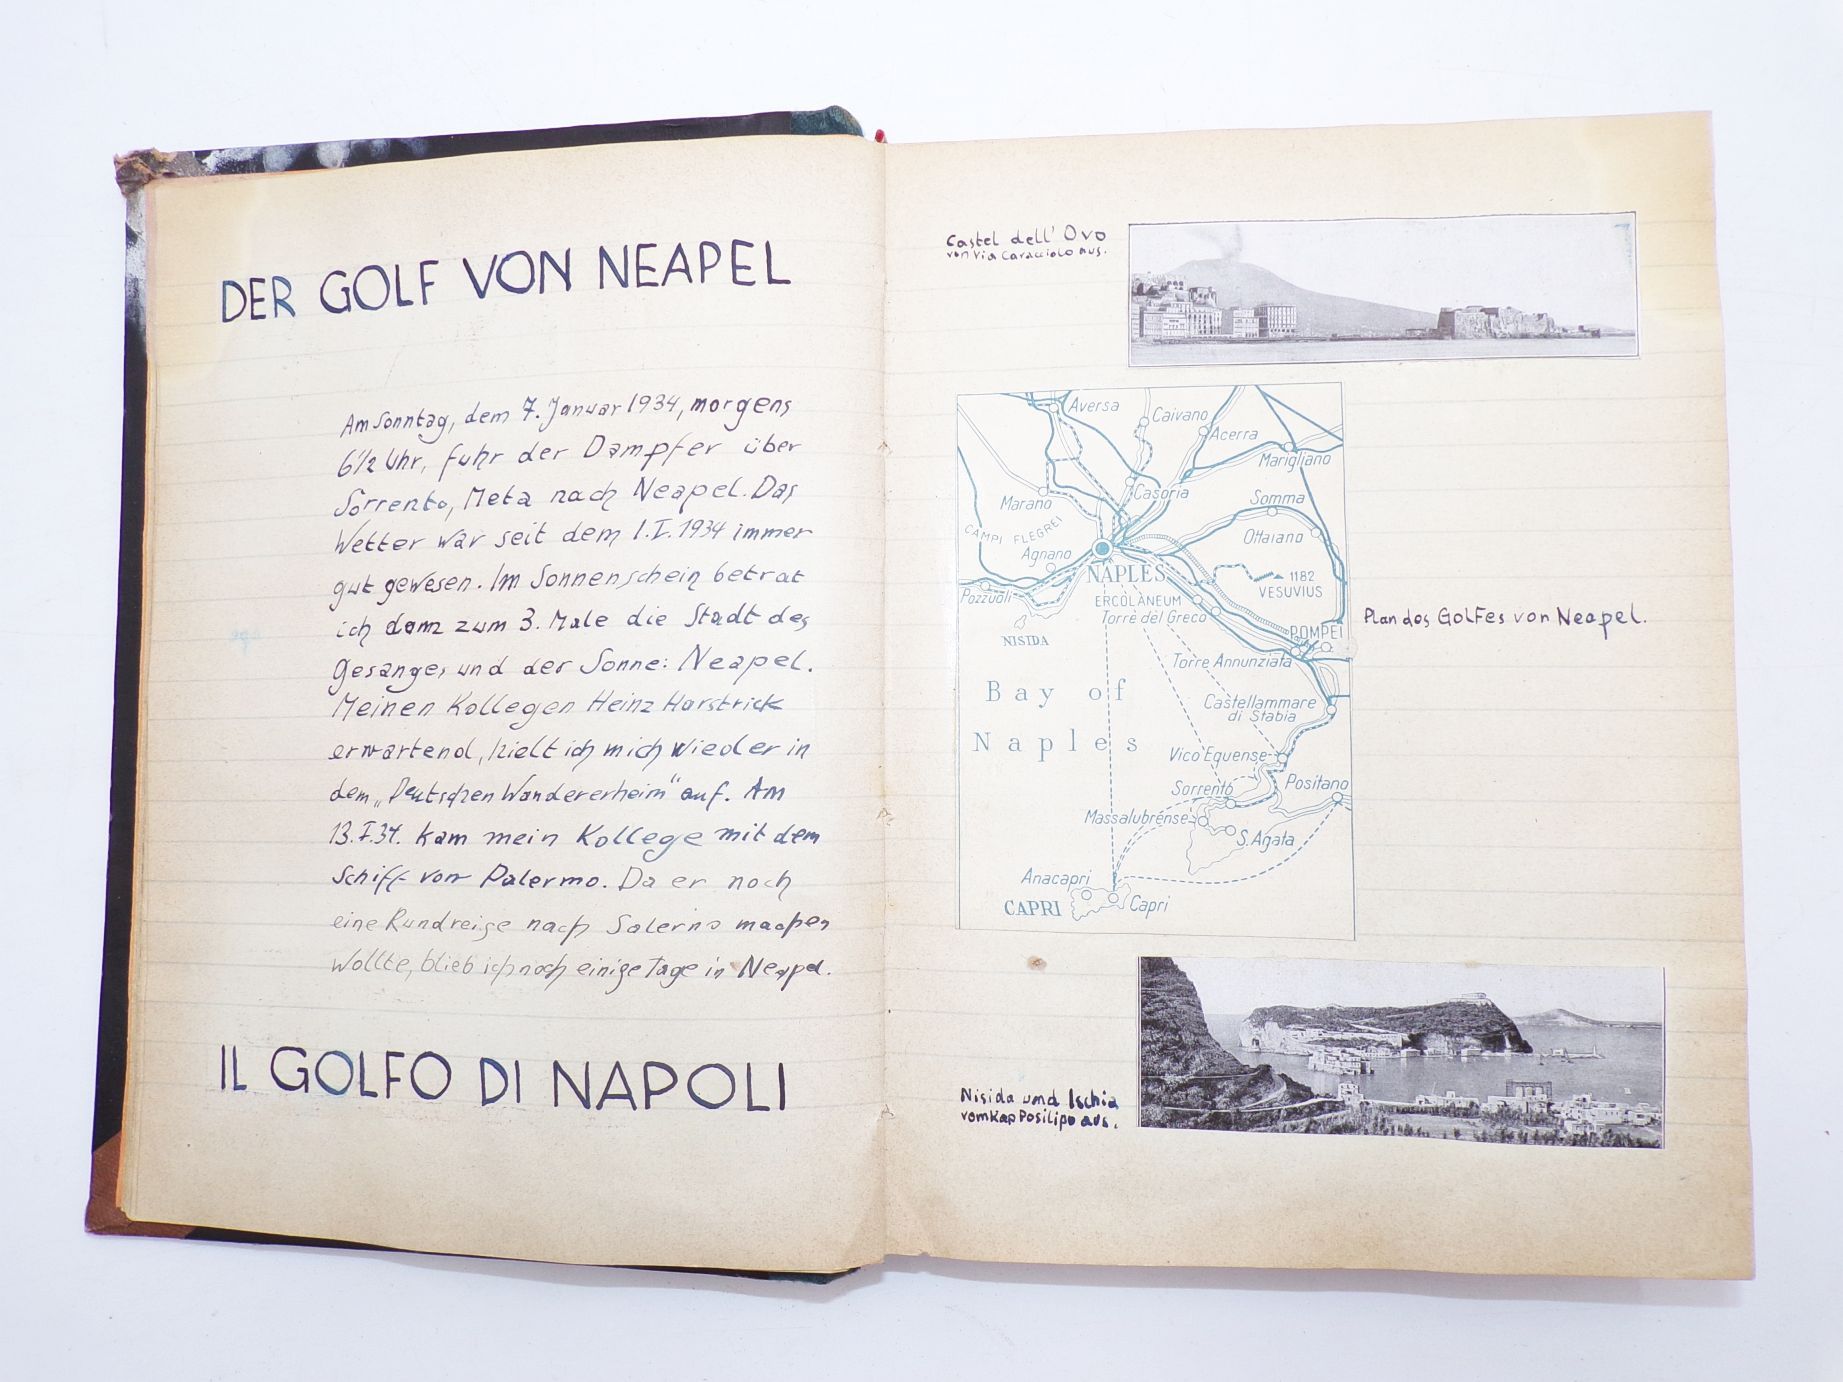 DER GOLF VON NEAPEL
Am Sonntag, dem 7. Januar 1934, morgens
6½ Uhr, fuhr der Dampfer über
Sorrento, Meta nach Neapel. Das
Wetter war seit dem 1.I.1934 immer
gut gewesen. Im Sonnenschein betrat
ich dann zum 3. Male die Stadt des
Gesanges und der Sonne: Neapel.
Meinen Kollegen Heinz Harstrick
erwartend, hielt ich mich wieder in
dem „Deutschen Wandererheim" auf. Am
13.I.34. kam mein Kollege mit dem
Schiff von Palermo. Da er noch
eine Rundreise nach Salerno machen
wollte, blieb ich noch einige Tage in Neapel.
IL GOLFO DI NAPOLI
Castel dell' Ovo
von Via Caracciolo aus.
Aversa
Caivano
Acerra
Marigliano
Casoria
Marano
Somma
CAMPI FLEGREI
Ottaiano
Agnano
NAPLES
1182
VESUVIUS
Pozzuoli
ERCOLANEUM
Torre del Greco
NISIDA
POMPEI
Torre Annunziata
Bay of
Naples
Castellammare
di Stabia
Vico Equense
Sorrento
Positano
Massalubrense
S. Agata
Anacapri
CAPRI
Capri
Plan des Golfes von Neapel.
Nisida und Ischia
vom Kap Posilipo aus.